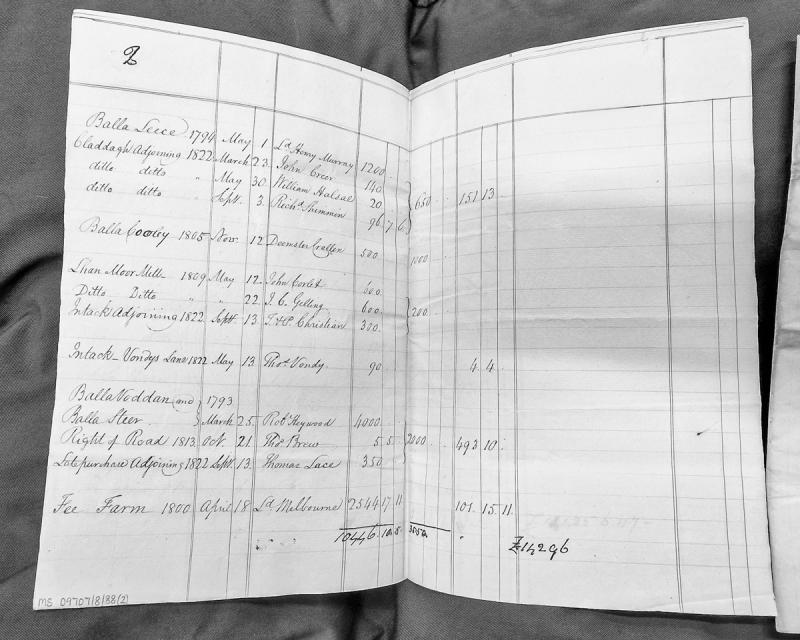 Balla Leece 1794 May 1 Ld Henry Murray 1200
Claddagh Adjoining 1822 March 23 John Creer 140
ditto ditto " May 30 William Halsal 20 650 151 13
ditto ditto " Sept. 3 Richd Shimmin 96 7 6
Balla Cooley 1805 Novr. 12 Deemster Crellen 500 1000
Lhan Moor Mill 1809 May 12 John Corlet 600
Ditto Ditto " " 22 J. C. Gelling 600 200
Intack Adjoining 1822 Sept. 13 Christian 300
Intack Vondys Lane 1822 May 13 Thos. Vondy 90 4 4
Balla Voddan and 1793
Balla Steer March 25 Robt Heywood 4000
Right of Road 1813 Oct. 21 Thos Brew 5 5 2000 493 10
Late purchase Adjoining 1822 Sept. 13 Thomas Lace 350
Fee Farm 1800 April 18 Ld Melbourne 2544 17 11 101 15 11
10446 10 5
£14296
MS 09707/8/38(2)